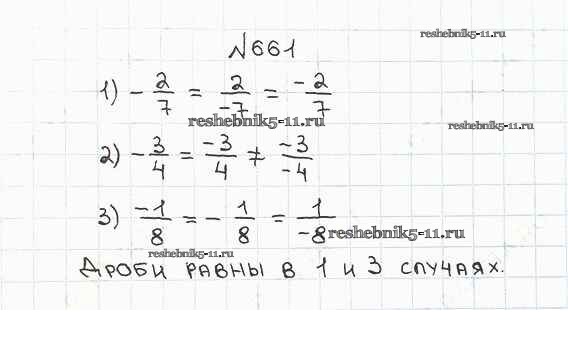 №661
reshebnik5-11.ru
1) - 2/7 = 2/-7 = -2/7
reshebnik5-11.ru
reshebnik5-11.ru
2) - 3/4 = -3/4 ≠ -3/-4
3) -1/8 = - 1/8 = 1/-8
reshebnik5-11.ru
reshebnik5-11.ru
ДРОБИ РАВНЫ В 1 И 3 СЛУЧАЯХ.